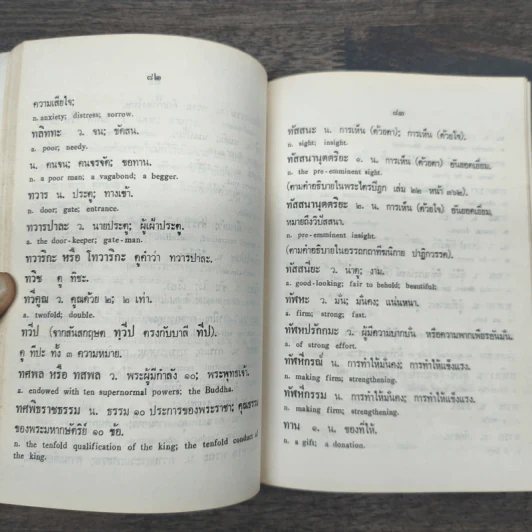 ๗๒
ความเสียใจ;
n. anxiety; distress; sorrow.
ทลิททะ ว. จน; ขัดสน.
a. poor; needy.
น. คนจน; คนจรจัด; ขอทาน.
n. a poor man; a vagabond; a begger.
ทวาร น. ประตู; ทางเข้า.
n. door; gate; entrance.
ทวารปาละ ว. นายประตู; ผู้เฝ้าประตู.
a. the door-keeper; gate-man.
ทวาริกะ หรือ โทวาริกะ ดูคำว่า ทวารปาละ.
ทวิช ดู ทิชะ.
ทวีคูณ ว. คูณด้วย ๒; ๒ เท่า.
a. twofold; double.
ทวีป (จากสันสกฤต ทฺวีป ตรงกับบาลี ทีป).
ดู ทีปะ ทั้ง ๓ ความหมาย.
ทศพล หรือ ทสพล ว. พระผู้มีกำลัง ๑๐; พระพุทธเจ้า.
a. endowed with ten supernormal powers; the Buddha.
ทศพิธราชธรรม น. ธรรม ๑๐ ประการของพระราชา; คุณธรรม
ของพระมหากษัตริย์ ๑๐ ข้อ.
n. the tenfold qualification of the king; the tenfold conduct of
the king.
๗๓
ทัสสนะ น. การเห็น (ด้วยตา); การเห็น (ด้วยใจ).
n. sight; insight.
ทัสสนานุตตริยะ ๑. น. การเห็น (ด้วยตา) อันยอดเยี่ยม.
n. the pre-emminent sight.
(ตามคำอธิบายในพระไตรปิฎก เล่ม ๒๒ หน้า
ทัสสนานุตตริยะ ๒. น. การเห็น (ด้วยใจ) อันยอดเยี่ยม
หมายถึงวิปัสสนา.
n. pre-emminent insight.
(ตามคำอธิบายในอรรถกถาทีฆนิกาย ปาฏิกวรรค).
ทัสสนียะ ว. น่าดู; งาม.
a. good-looking; fair to behold; beautiful.
ทัฬหะ ว. มั่น; มั่นคง; แน่นหนา.
a. firm; strong; fast.
ทัฬหปรักกมะ ว. ผู้มีความบากบั่น หรือความพากเพียรอันมั่น.
a. of strong effort.
ทัฬหีกรณ์ น. การทำให้มั่นคง; การทำให้แข็งแรง.
n. making firm; strengthening.
ทัฬหีกรรม น. การทำให้มั่นคง; การทำให้แข็งแรง.
n. making firm; strengthening.
ทาน ๑. น. ของที่ให้.
n. a gift; a donation.